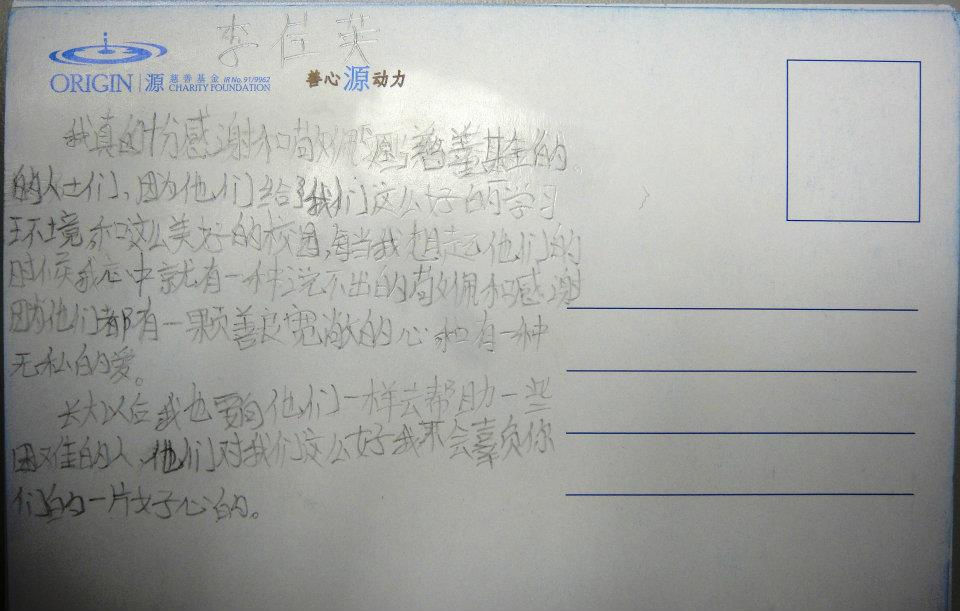 李佳英
ORIGIN 源 慈善基金 IR No. 91/9962
CHARITY FOUNDATION
善心源动力
我真的十份感谢和敬佩源慈善基金的
的人士们、因为他们给了我们这么好的学习
环境和这么美好的校园,每当我想起他们的
时候我心中就有一种说不出的敬佩和感谢
因为他们都有一颗善良宽敞的心和有一种
无私的爱。
长大以后我也要向他们一样去帮助一些
困难的人、他们对我们这么好我不会辜负你
们的一片好心的。